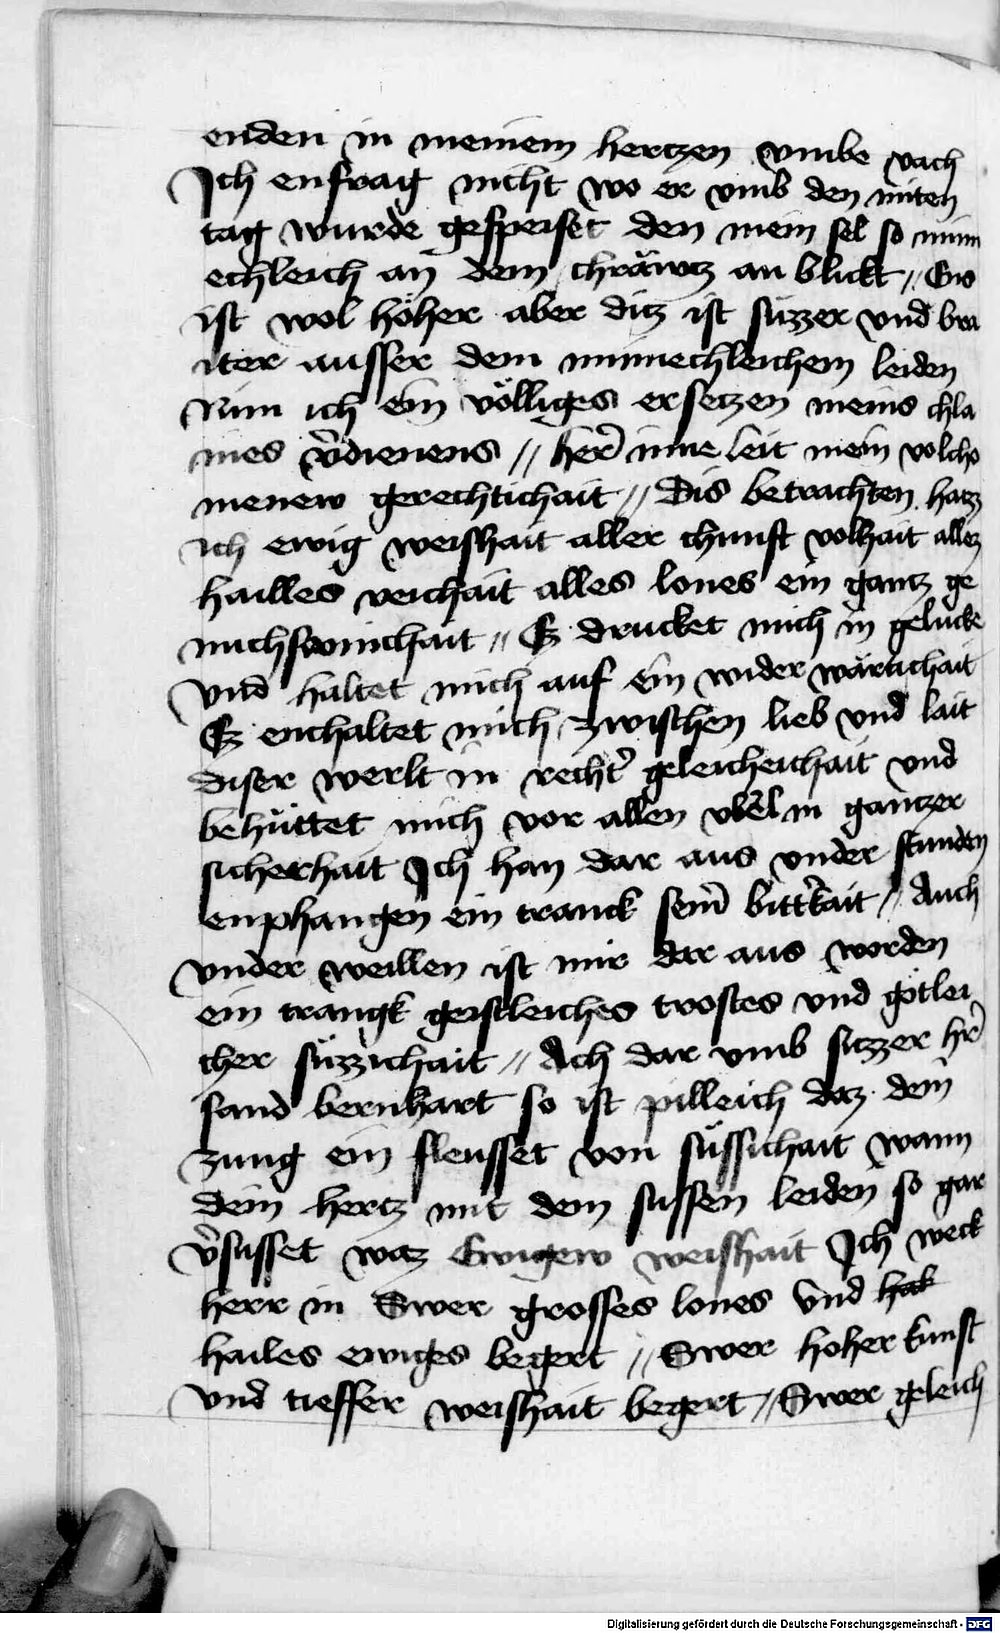 enden in meinem hertzen vmbe vach
Ich enfrag nicht wo er vmb den miten
tag wurde gespeiset den mein sel so minn
echleich an dem chräwtz an blickt // Ens
ist wol höher aber ditz ist süzzer vnd bra
iter ausser dem minnechleichem leiden
Nim ich ein völliges ersetzen meins chla
ines v̉dienens // her̉ inne leit mein volcho
menew gerechtichait // Dis betrachten hatz
ich ewig weishait aller chunst volhait allez
hailles reichait alles lones ein gantz ge
nuchsomichait // Ez drucket mich in gelucke
vnd haltet mich auf ein wider wärtichait
Ez enthaltet mich zwischen lieb vnd lait
diser werlt in recht̉ geleicheichait vnd
behüttet mich vor allen vbel in gantzer
sicherhait Ich han dar aus vnder stunden
enphangen ein tranck sein̉ bitt̉kait // Auch
vnder weillen ist mir dar aus worden
ein trangk geistleiches trostes vnd götlei
cher süzzichait // Ach dar vmb sizzer hr̉
sand bernhart so ist pilleich daz dein
zung ein fleusset von süssichait wann
dein hertz mit dem sussen leiden so gar
v̉susset waz Ewigew weishait Ich weck
herr in Swer grosses lones vnd hak
hailes ewiges begert // Swer hoher kunst
vnd tieffer weishait begert // Swer geleich
Digitalisierung gefördert durch die Deutsche Forschungsgemeinschaft - DFG